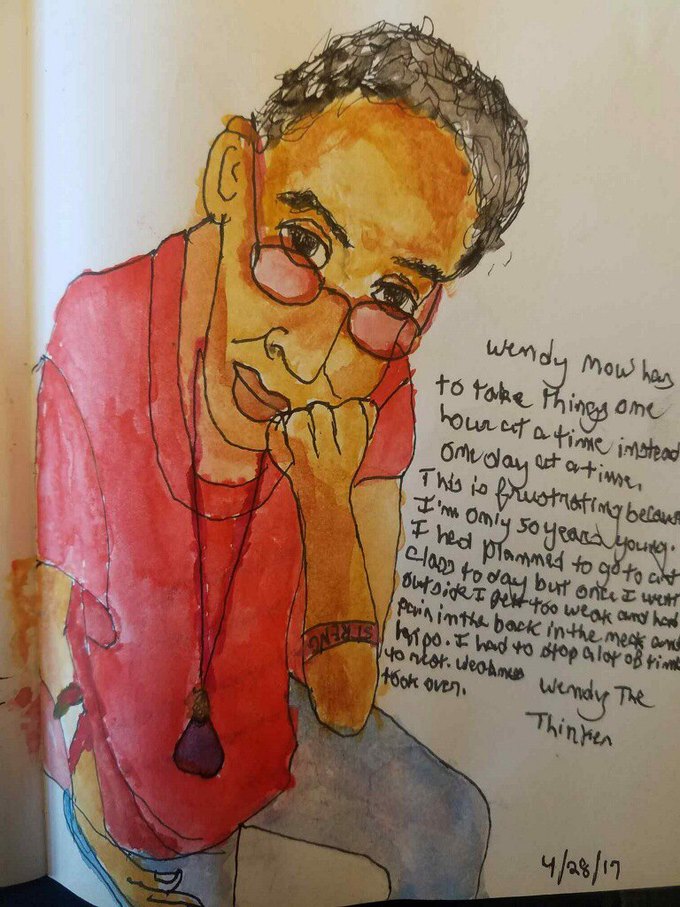 Wendy now has
to take things one
hour at a time instead
one day at a time.
This is frustrating because
I'm only 50 years young.
I had planned to go to art
class today but once I went
outside I felt too weak and had
pain in the back in the neck and
hips. I had to stop a lot of time
to rest. Weakness
took over.
Wendy The
Thinker
STRENG
4/28/17